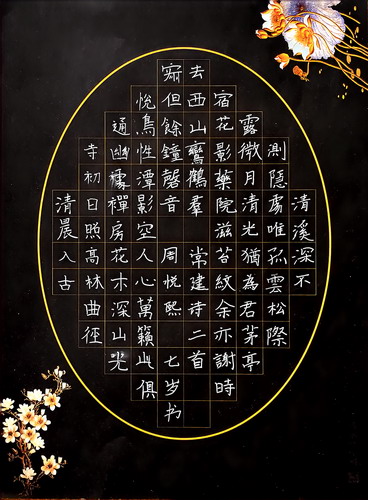 清溪深不
測隱處唯孤雲松際
露微月清光猶為君茅亭
宿花影藥院滋苔紋余亦謝時
去西山鸞鶴羣 常建诗二首
寂但餘鐘磬音 周悦熙 七岁书
悅鳥性潭影空人心萬籟此俱
通幽處禪房花木深山光
寺初日照高林曲徑
清晨入古